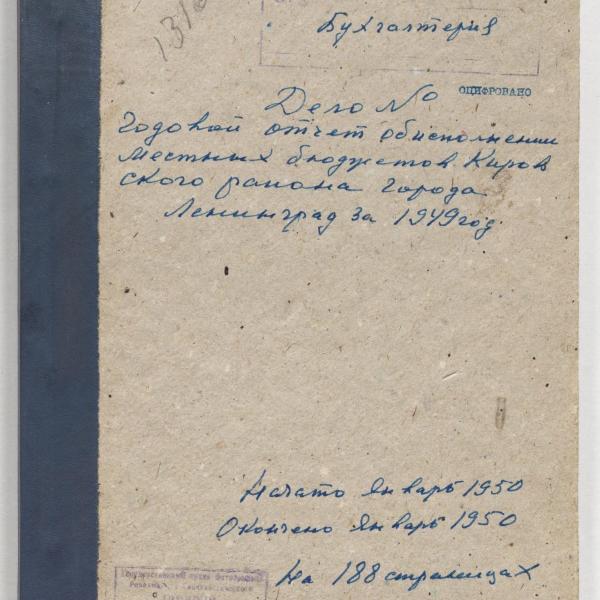 Бухгалтерия
ОЦИФРОВАНО
Дело №
Годовой отчет об исполнении
местных бюджетов Киров
ского района города
Ленинград за 1949 год.
Начато январь 1950
Окончено январь 1950
На 188 страницах
Государственный архив